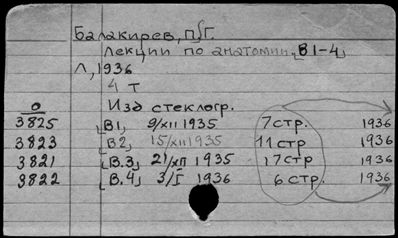 Балакирев, П.Г.
Лекции по анатомии. [В 1-4]
Л, 1936
4 т
О Изд стеклогр.
3825 [В1, 9/XII 1935 7 стр. 1936
3823 [В2, 15/XII 1935 11 стр 1936
3821 [В.3, 21/XII 1935 17 стр 1936
3822 [В.4, 3/I 1936 6 стр. 1936